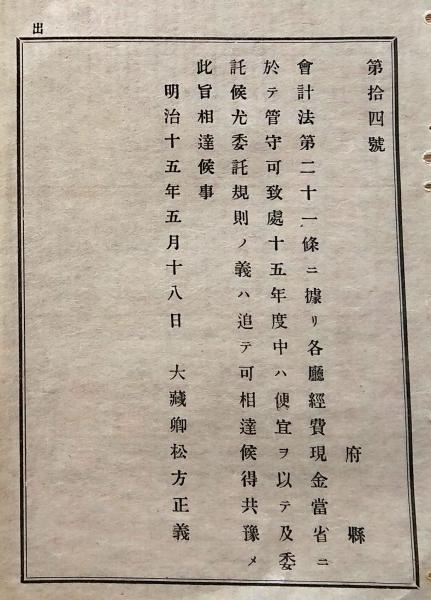 出
第拾四號
府縣
會計法第二十一條ニ據リ各廳經費現金當省ニ
於テ管守可致處十五年度中ハ便宜ヲ以テ及委
託候尤委託規則ノ義ハ追テ可相達候得共豫メ
此旨相達候事
明治十五年五月十八日 大藏卿松方正義